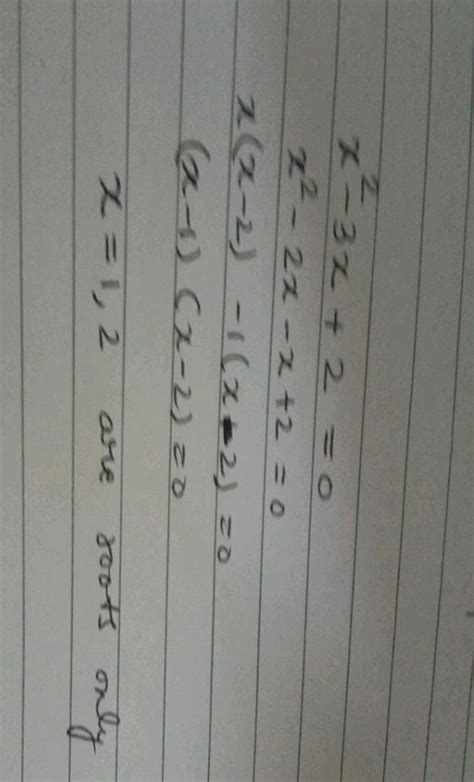 x² - 3x + 2 = 0
x² - 2x - x + 2 = 0
x(x-2) - 1(x-2) = 0
(x-1) (x-2) = 0
x = 1, 2 are roots only